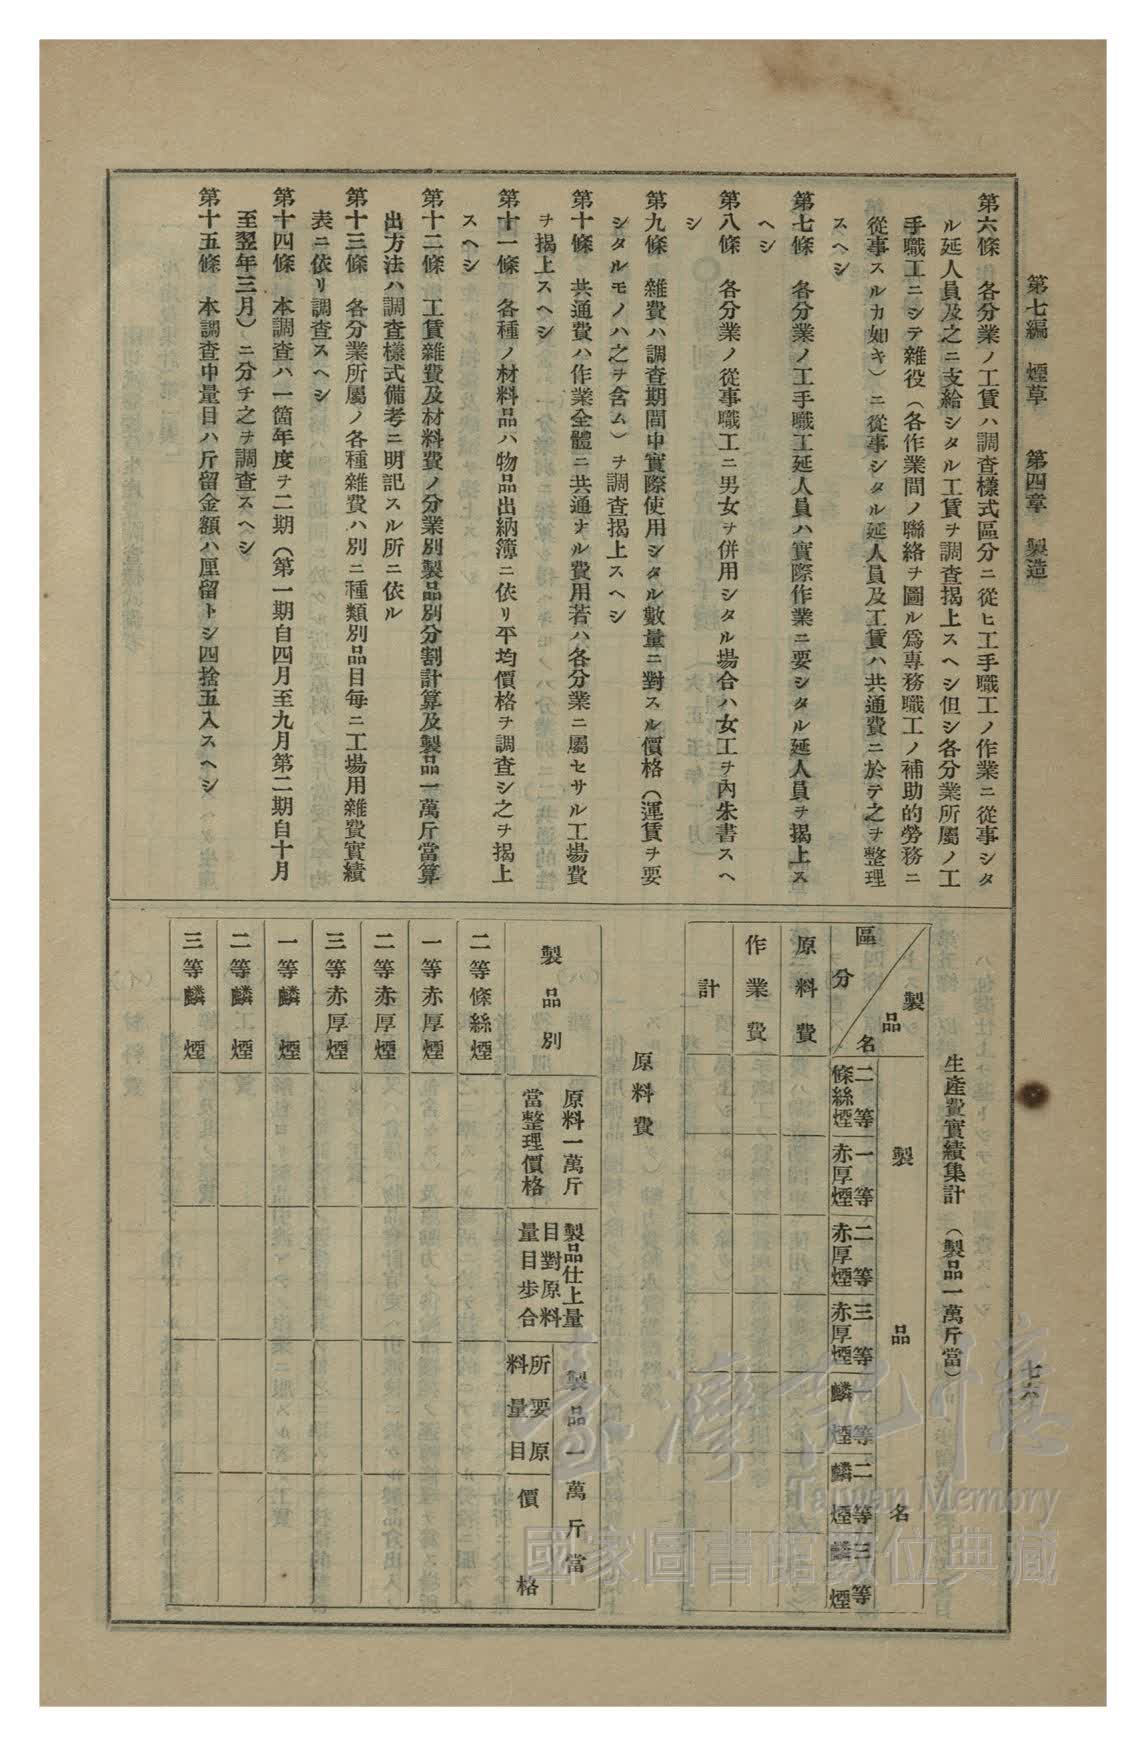 第七編 煙草 第四章 製造
七六
第六條 各分業ノ工賃ハ調查樣式區分ニ從ヒ工手職工ノ作業ニ從事シタ
ル延人員及之ニ支給シタル工賃ヲ調查揭上スヘシ但シ各分業所屬ノ工
手職工ニシテ雜役(各作業間ノ聯絡ヲ圖ル爲專務職工ノ補助的勞務ニ
從事スルカ如キ)ニ從事シタル延人員及工賃ハ共通費ニ於テ之ヲ整理
スヘシ
第七條 各分業ノ工手職工延人員ハ實際作業ニ要シタル延人員ヲ揭上ス
ヘシ
第八條 各分業ノ從事職工ニ男女ヲ併用シタル場合ハ女工ヲ內朱書スヘ
シ
第九條 雜費ハ調查期間中實際使用シタル數量ニ對スル價格(運賃ヲ要
シタルモノハ之ヲ含ム)ヲ調查揭上スヘシ
第十條 共通費ハ作業全體ニ共通ナル費用若ハ各分業ニ屬セサル工場費
ヲ揭上スヘシ
第十一條 各種ノ材料品ハ物品出納簿ニ依リ平均價格ヲ調查シ之ヲ揭上
スヘシ
第十二條 工賃雜費及材料費ノ分業別製品別分割計算及製品一萬斤當算
出方法ハ調查樣式備考ニ明記スル所ニ依ル
第十三條 各分業所屬ノ各種雜費ハ別ニ種類別品目每ニ工場用雜費實績
表ニ依リ調查スヘシ
第十四條 本調查ハ一箇年度ヲ二期(第一期自四月至九月第二期自十月
至翌年三月)ニ分チ之ヲ調查スヘシ
第十五條 本調查中量目ハ斤留金額ハ厘留トシ四捨五入スヘシ
生產費實績集計 (製品一萬斤當)
製品名
區分
製品名
二等條絲煙
一等赤厚煙
二等赤厚煙
三等赤厚煙
一等麟煙
二等麟煙
三等麟煙
原料費
作業費
計
原料費
製品別
原料一萬斤當整理價格
製品仕上量目對原料量目步合
製品一萬斤當
所要原料量目
價格
二等條絲煙
一等赤厚煙
二等赤厚煙
三等赤厚煙
一等麟煙
二等麟煙
三等麟煙
臺灣記憶
Taiwan Memory
國家圖書館數位典藏